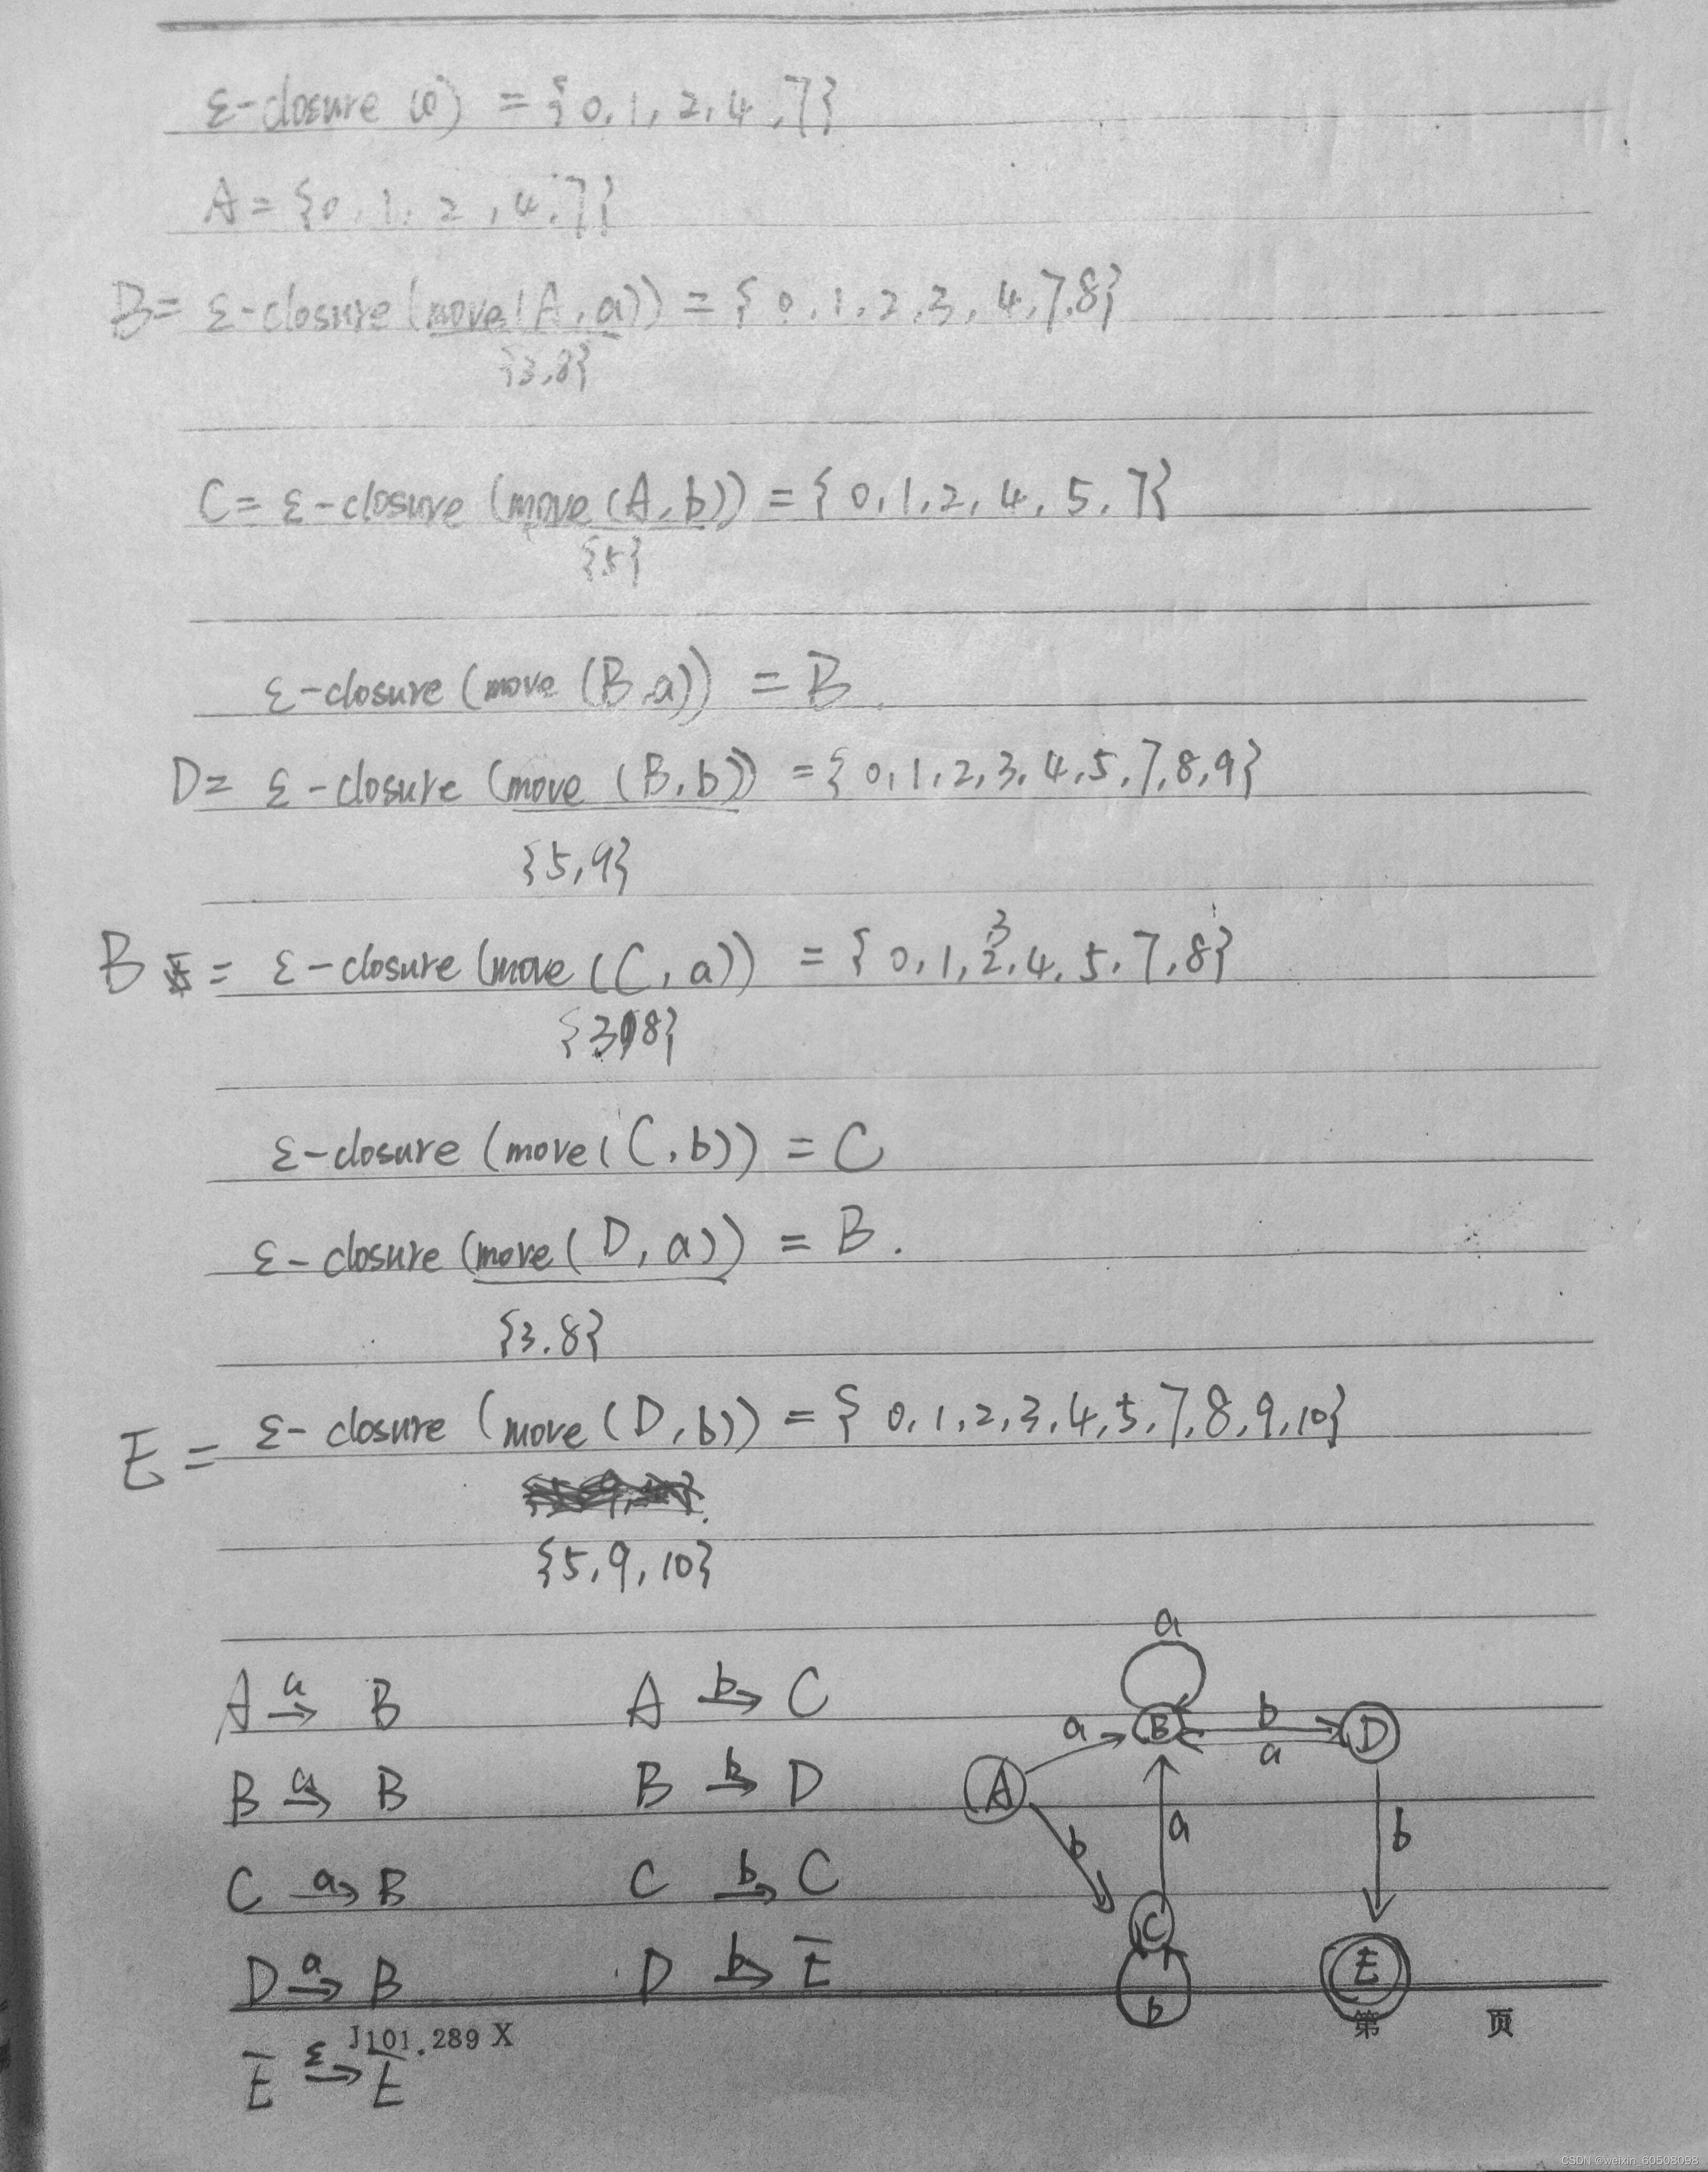 ε-closure (0) = {0,1,2,4,7}
A = {0,1,2,4,7}
B = ε-closure (move (A,a)) = {0,1,2,3,4,7,8}
{3,8}
C = ε-closure (move (A,b)) = {0,1,2,4,5,7}
{5}
ε-closure (move (B,a)) = B.
D = ε-closure (move (B,b)) = {0,1,2,3,4,5,7,8,9}
{5,9}
3
B = ε-closure (move (C,a)) = {0,1,2,4,5,7,8}
{3,8}
ε-closure (move (C,b)) = C
ε-closure (move (D,a)) = B.
{3.8}
E = ε-closure (move (D,b)) = {0,1,2,3,4,5,7,8,9,10}
{5,9,10}
A a→ B A b→ C
B a→ B B b→ D
C a→ B C b→ C
D a→ B D b→ E
E ε→ E
a
a B b D
a
A
b a b
C
b E
J101.289 X 第 页
CSDN @weixin_60508098